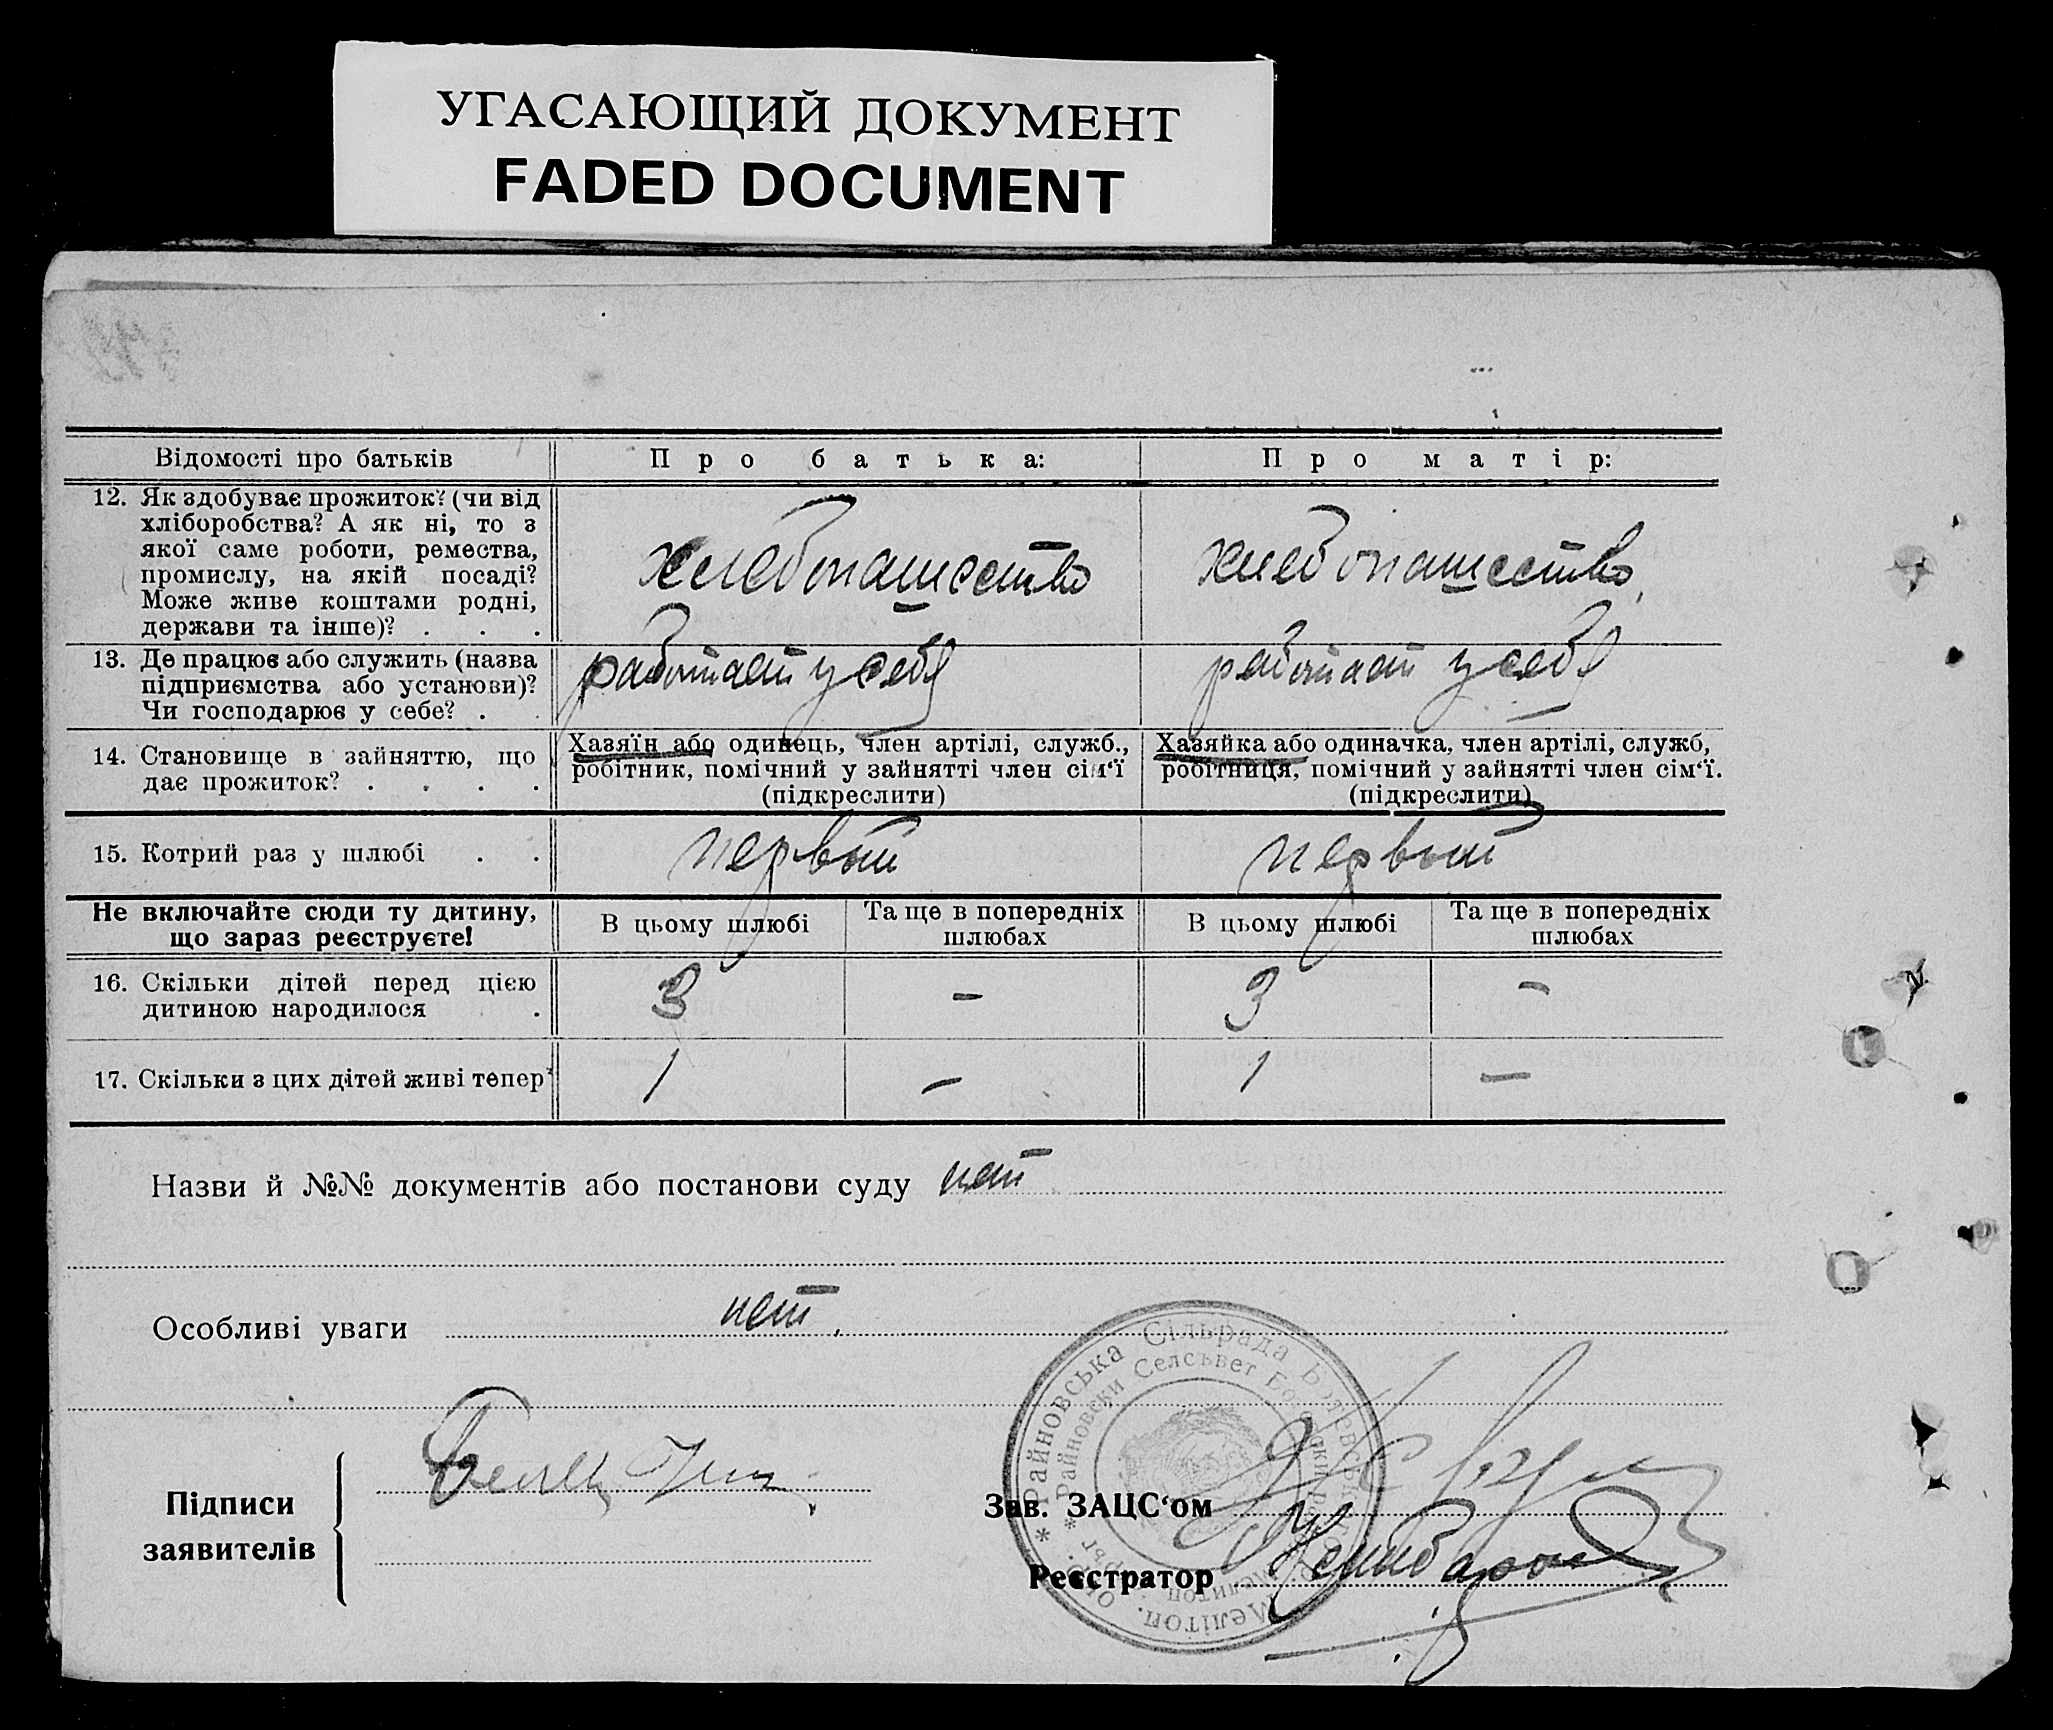 УГАСАЮЩИЙ ДОКУМЕНТ
FADED DOCUMENT
Відомості про батьків
Про батька:
Про матір:
12. Як здобуває прожиток? (чи від
хліборобства? А як ні, то з
якої саме роботи, ремества,
промислу, на якій посаді?
Може живе коштами родні,
держави та інше)? . . .
хлебопашество
хлебопашество,
13. Де працює або служить (назва
підприємства або установи)?
Чи господарює у себе? .
работает у себя
работает у себя
14. Становище в зайняттю, що
дає прожиток? . . . .
Хазяїн або одинець, член артілі, служб.,
робітник, помічний у зайнятті член сім‘ї
(підкреслити)
Хазяйка або одиначка, член артілі, служб,
робітниця, помічний у зайнятті член сім‘ї.
(підкреслити)
15. Котрий раз у шлюбі . .
первый
первый
Не включайте сюди ту дитину,
що зараз реєструєте!
В цьому шлюбі
Та ще в попередніх
шлюбах
В цьому шлюбі
Та ще в попередніх
шлюбах
16. Скільки дітей перед цією
дитиною народилося .
3
–
3
–
17. Скільки з цих дітей живі тепер?
1
–
1
–
Назви й №№ документів або постанови суду нет
Особливі уваги нет.
Райновська Сільрада Ботевськ
Райновски Селсъвет
Мелітоп. окр.
Підписи
заявителів
Зав. ЗАЦС‘ом
Реєстратор